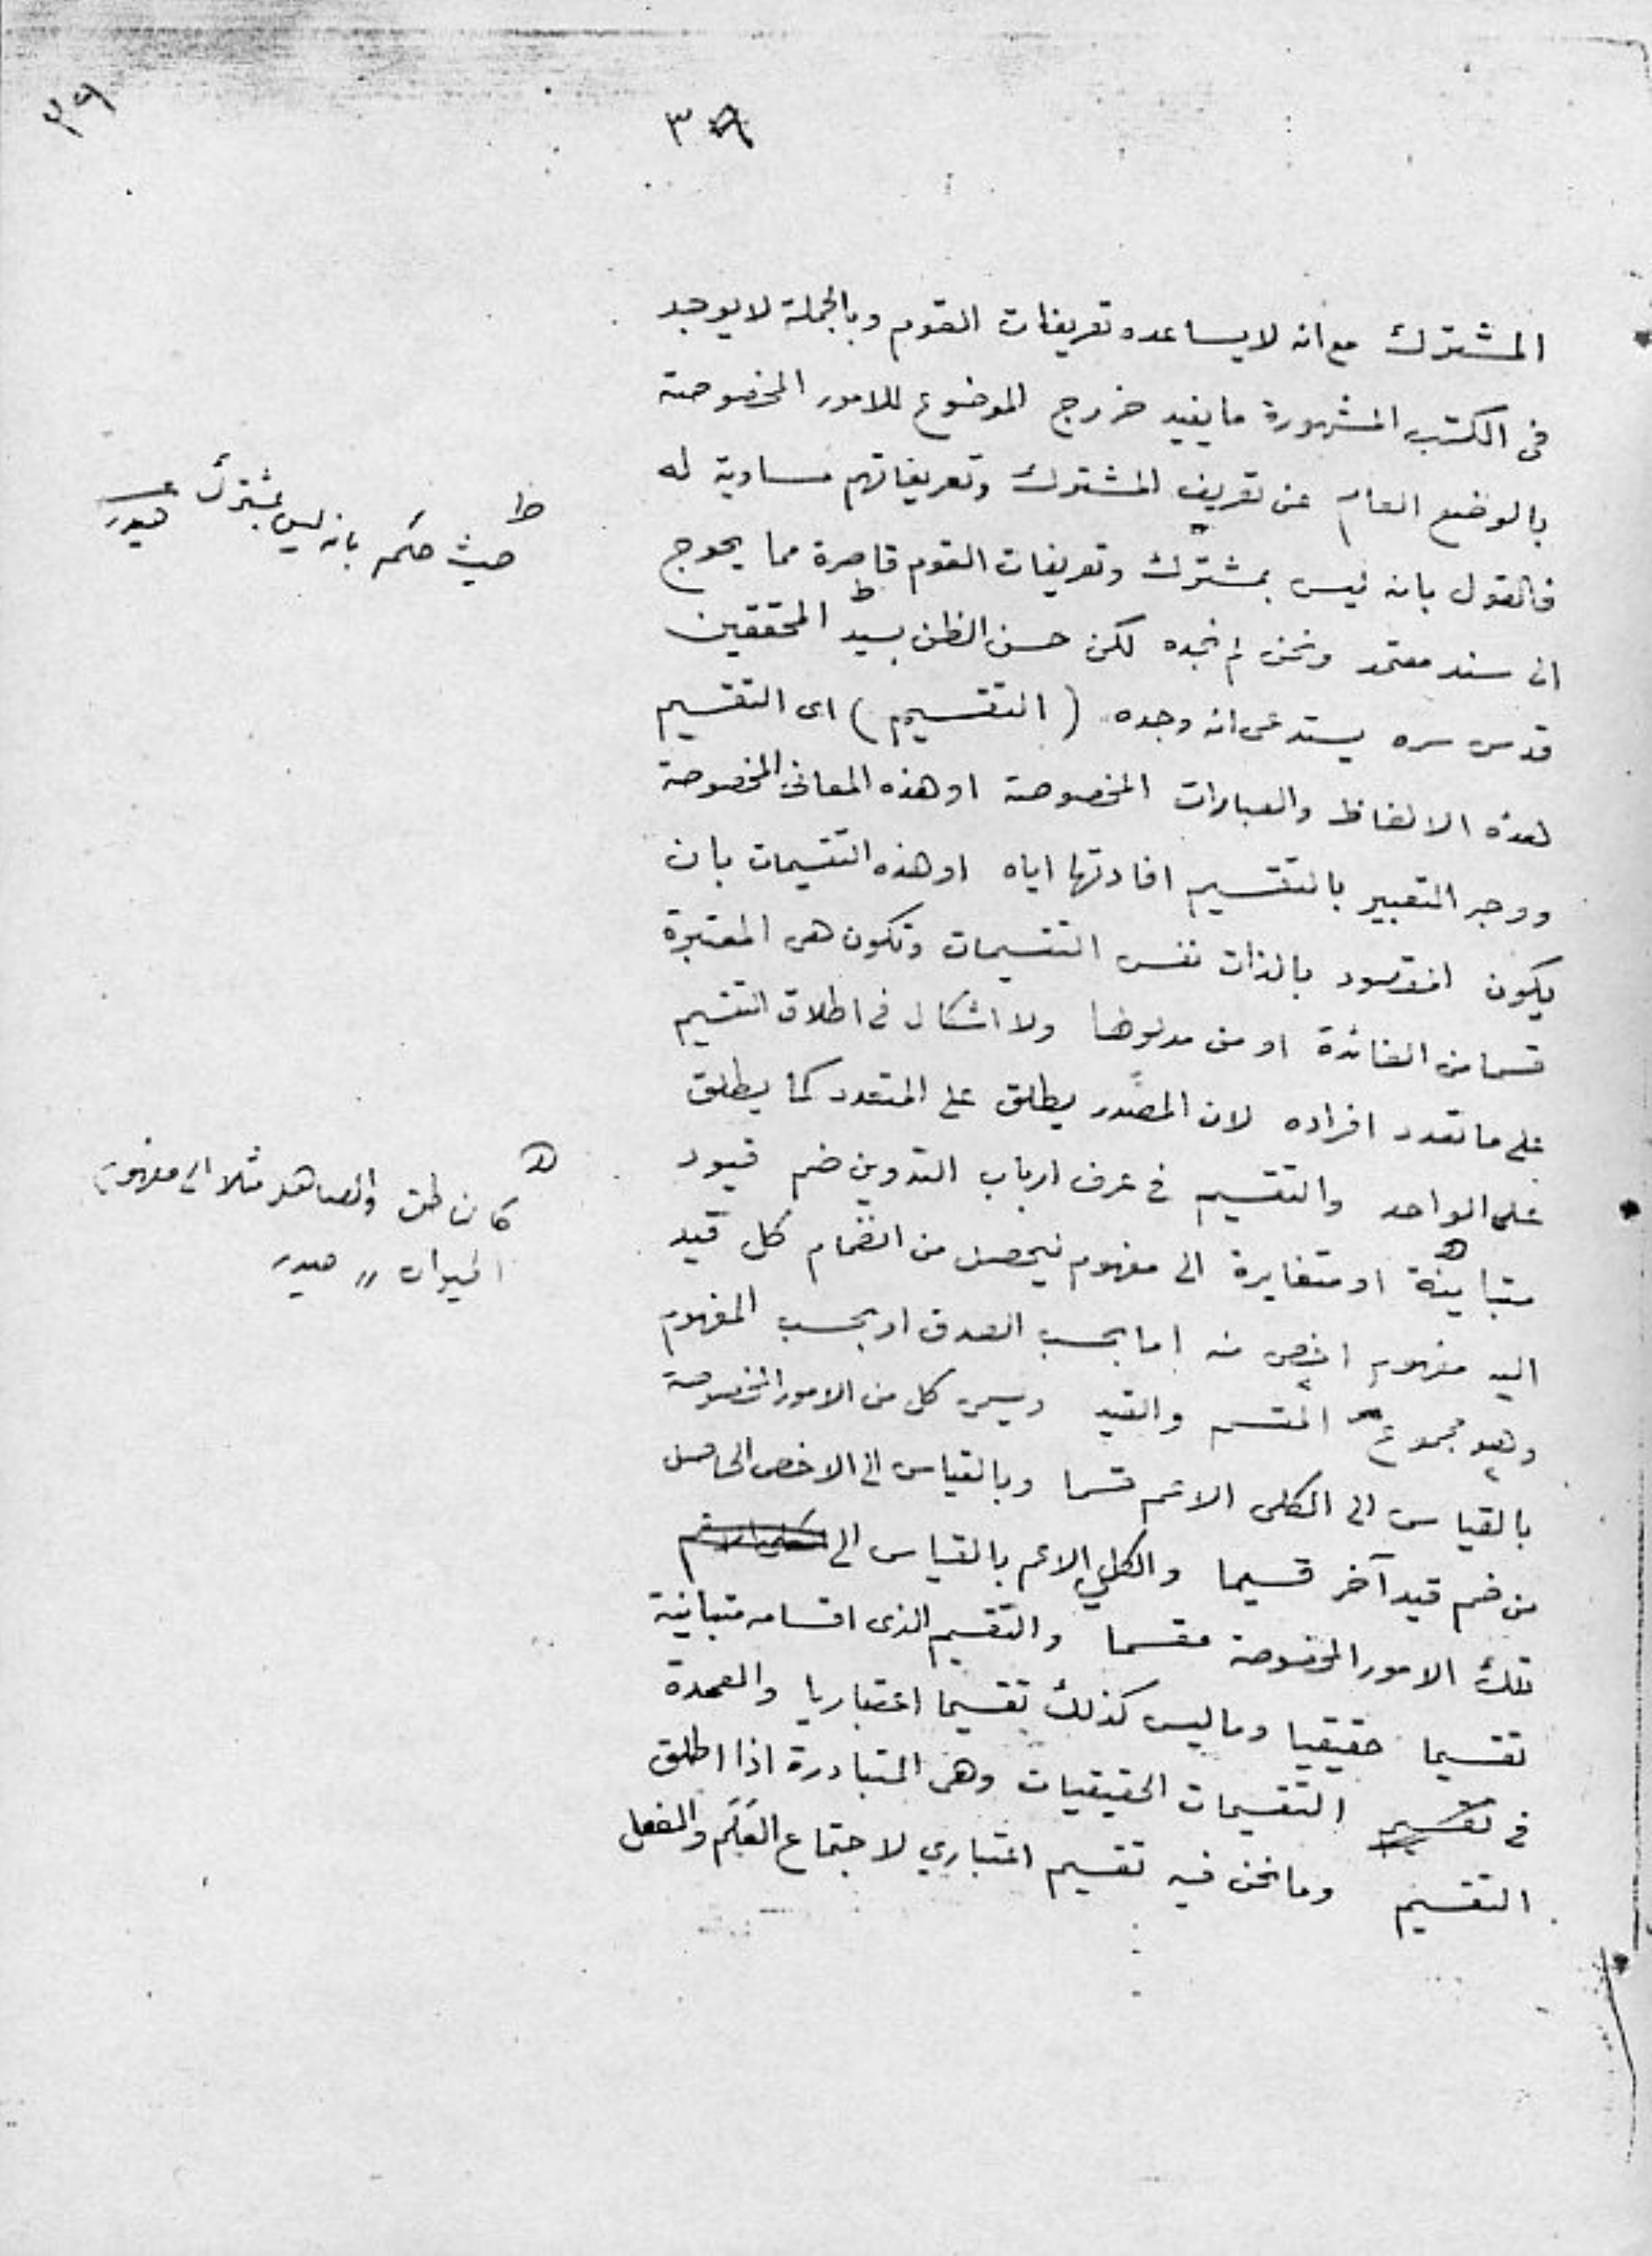 ٣٩
٣٩
المشترك مع انه لا يساعده تعريفات القوم وبالجملة لا يوجد
فى الكتب المشهورة ما يفيد خروج الموضوع للامور المخصوصة
بالوضع العام عن تعريف المشترك وتعريفاتهم مساوية له
فالقول بانه ليس بمشترك وتعريفات القوم قاصرة مما يحوج
الى سند معتمد ونحن لم نجده لكن حسن الظن بسيد المحققين
قدس سره يستدعى انه وجده (التقسيم) اى التقسيم
لهذه الالفاظ والعبارات المخصوصة او هذه المعانى المخصوصة
ووجه التعبير بالتقسيم افادتها اياه او هذه التقسيمات بان
يكون المقصود بالذات نفس التقسيمات وتكون هى المعتبرة
قسما من الفائدة او من مدلولها ولا اشكال فى اطلاق التقسيم
على ما تعدد افراده لان المصدر يطلق على المتعدد كما يطلق
على الواحد والتقسيم فى عرف ارباب التدوين ضم قيود
متباينة او متغايرة الى مفهوم فيحصل من انضمام كل قيد
اليه مفهوم اخص منه اما بحسب الصدق او بحسب المفهوم
وهو مجموع المقسم والقيد ويسمى كل من الامور المخصوصة
بالقياس الى الكلى الاعم قسما وبالقياس الى الاخص الحاصل
من ضم قيد آخر قسيما والكلي الاعم بالقياس الى
تلك الامور المخصوصة مقسما والتقسيم الذى اقسامه متباينة
تقسيما حقيقيا وما ليس كذلك تقسيما اعتباريا والعمدة
فى التقسيمات الحقيقيات وهى المتبادرة اذا اطلق
التقسيم وما نحن فيه تقسيم اعتباري لاجتماع العَلَم والفعل
حيث حكم بانه ليس بمشترك
حيدر
كالناطق والصاهل مثلا الى مفهوم
الحيوان ,, حيدر